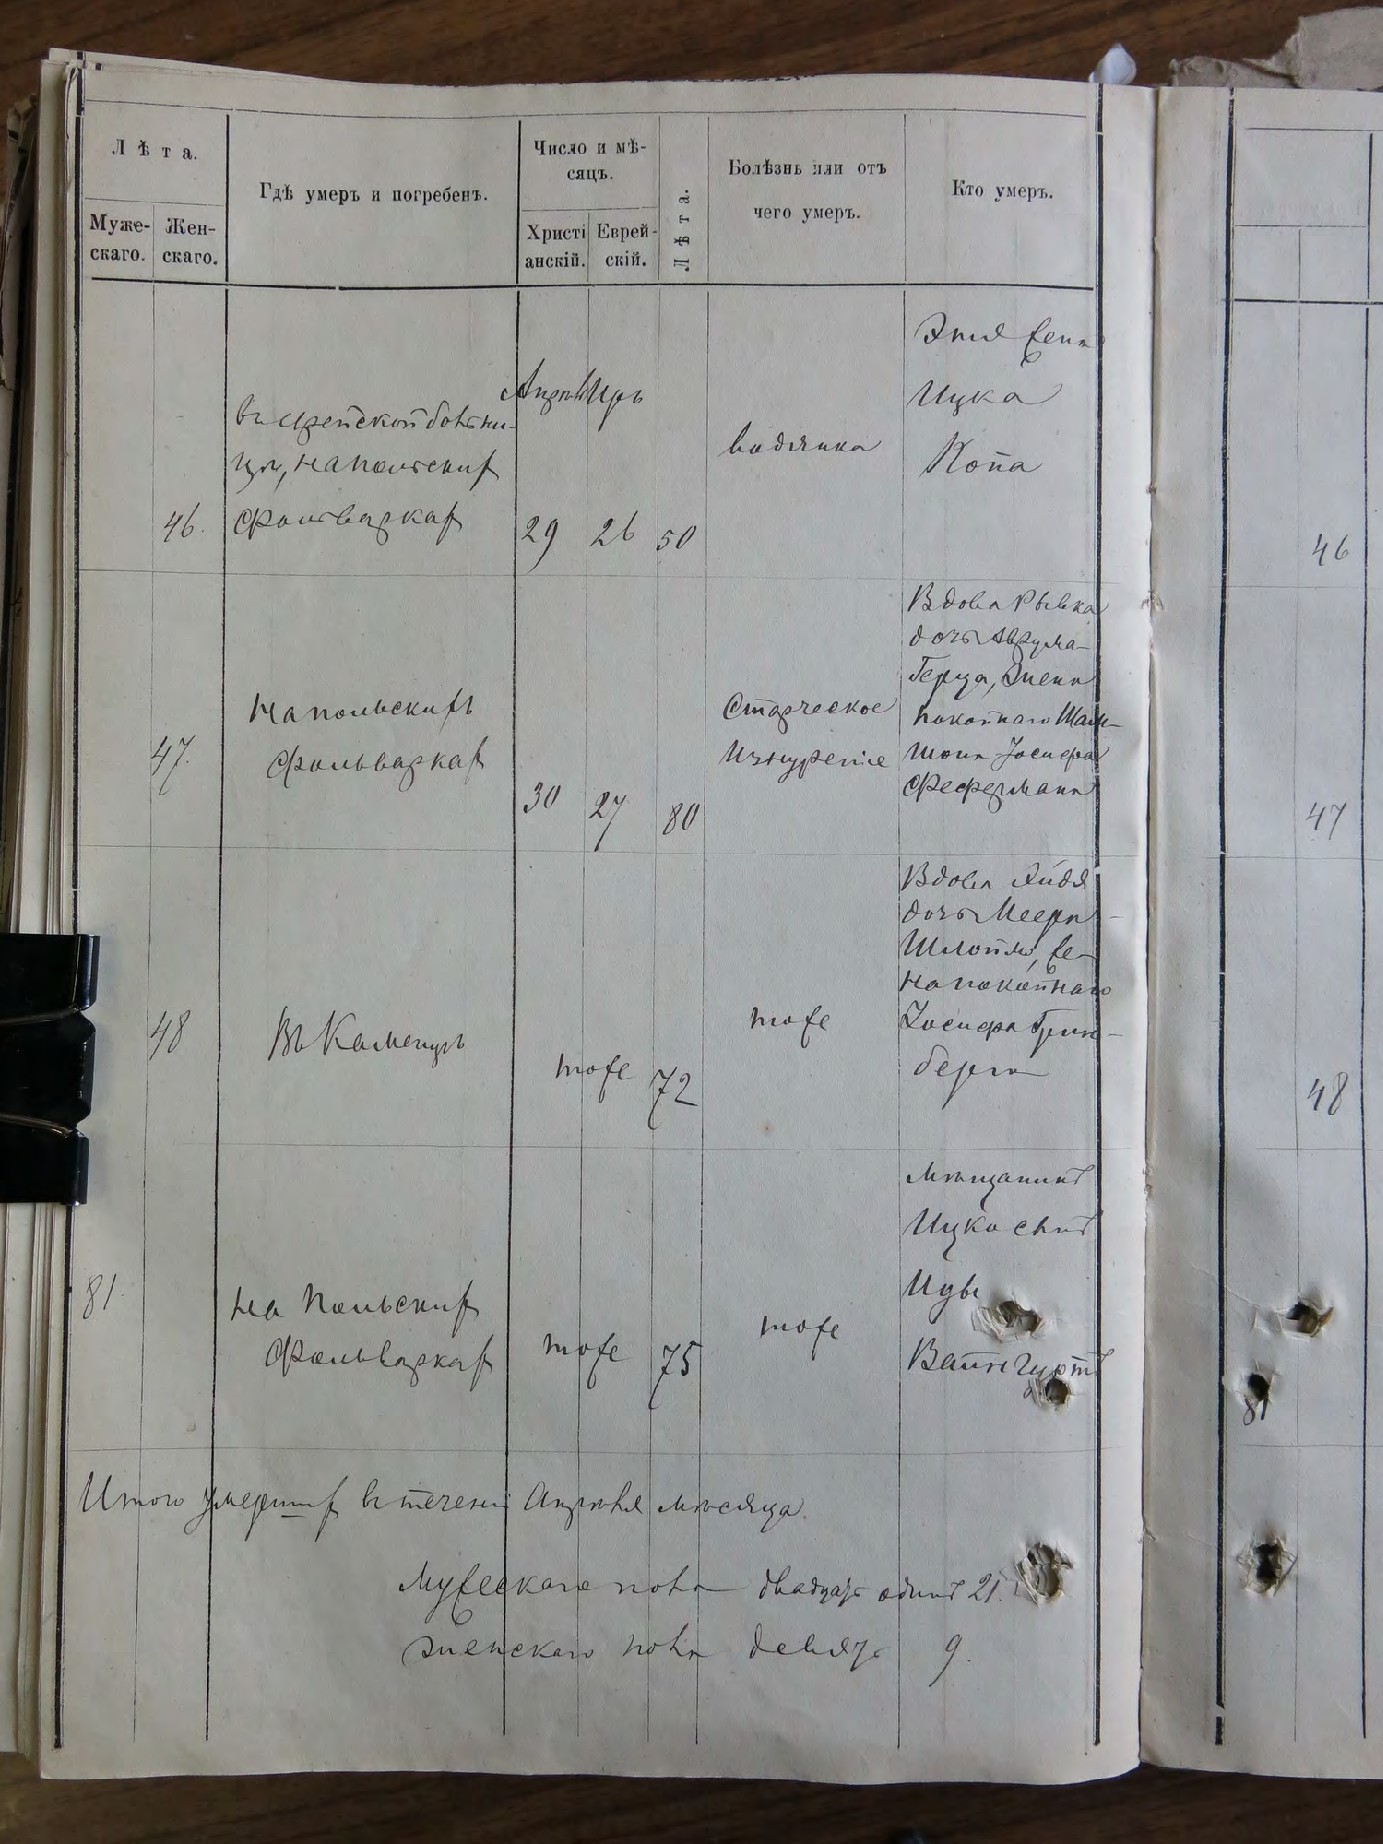 Лѣта.
Муже-
скаго.
Жен-
скаго.
Гдѣ умеръ и погребенъ.
Число и мѣ-
сяцъ.
Христі
анскій.
Еврей-
скій.
Лѣта.
Болѣзнь или отъ
чего умеръ.
Кто умеръ.
46.
въ Еврейской больни-
цѣ, на польских
фольварках
Апрѣль
29
Иръ
26
50
водянка
Этя жена
Ицка
Копа
46
47.
на польских
фольварках
30
27
80
Старческое
изнуреніе
Вдова Рывка
дочь Аврума
Герца, жена
покойнаго Шам-
шона Іосифа
Фефермана
47
48
Въ Каменцѣ
тоже
72
тоже
Вдова Хайдя
дочь Меера
Шлоймы, же-
на покойнаго
Іосифа Грин-
берга
48
81.
на польских
фольварках
тоже
75
тоже
мѣщанинъ
Ицко сынъ
Вайнгуртъ
81
Итого умерших въ теченіи Апрѣля мѣсяца.
Мужескаго пола двадцать одинъ 21.
Женскаго пола девять 9.